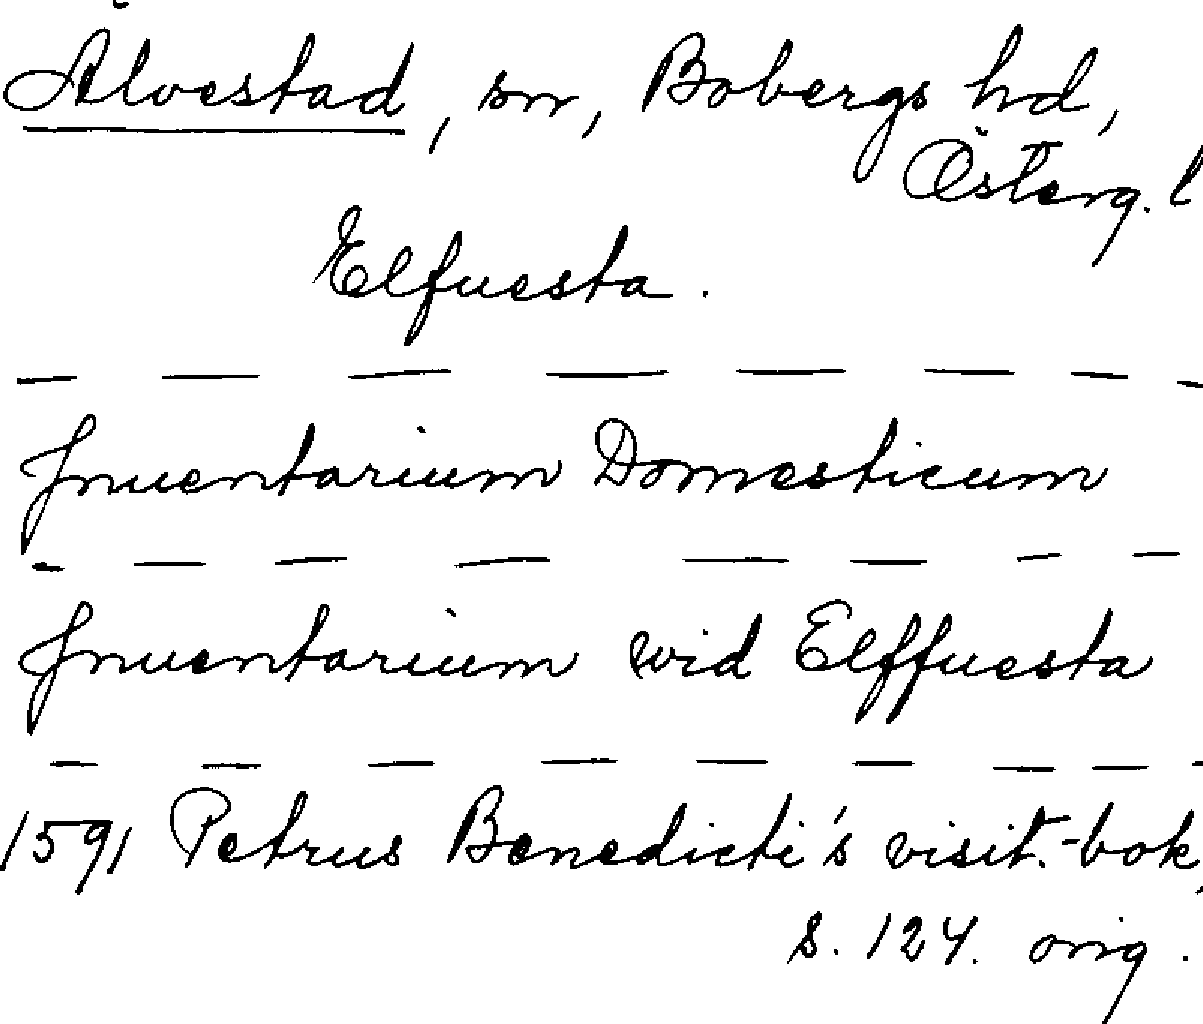 Älvestad, sn, Bobergs hd,
Österg. l
Elfuesta.
— — — — — — — —
Inuentarium Domesticum
— — — — — — — —
Inuentarium wid Elffuesta
— — — — — — — —
1591 Petrus Benedicti's visit.-bok,
s. 124. orig.